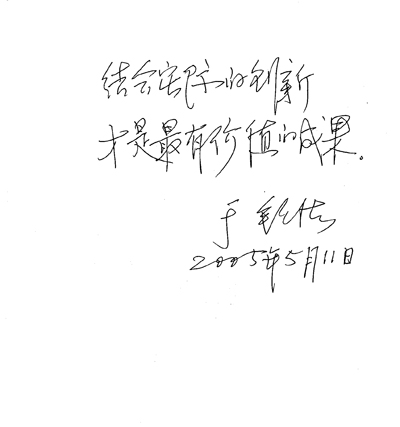 结合实际的创新
才是最有价值的成果。
于
2005年5月11日